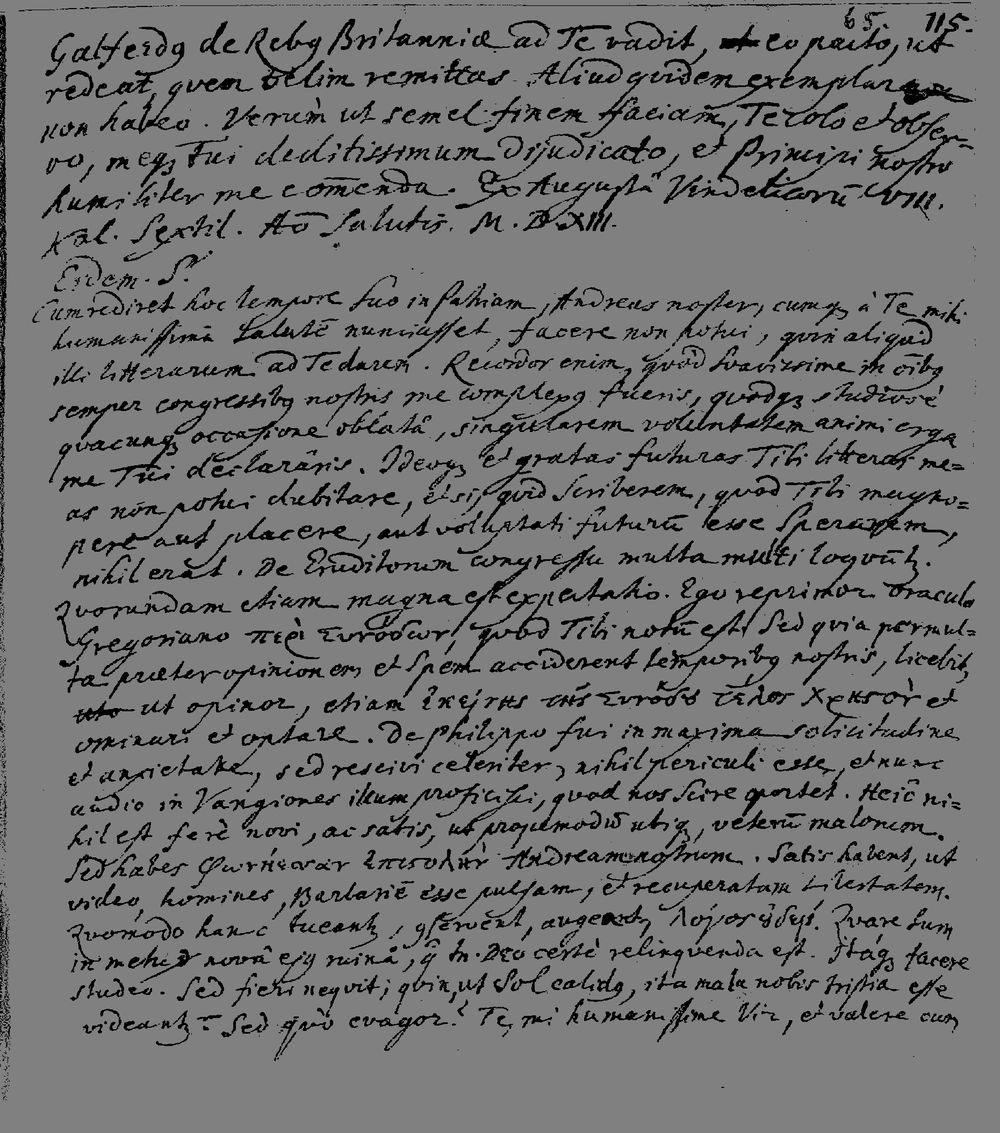 65. 115.
Galferdꝰ de Rebꝰ Britanniæ ad Te vadit, eo pacto, ut
redeat, quem velim remittas. Aliud quidem exemplar
non habeo. Verùm ut semel finem faciam, Te colo et obser-
vo, meqꝫ Tui deditissimum dijudicato, et Principi nostro
humiliter me com̄enda. Ex Augustâ Vindelicorū VIII.
Kal. Sextil. Aō Salutis. M.D.XIII.
Eidem. S.
Cum rediret hoc tempore suo in patriam, Andreas noster, cumqꝫ à Te mihi
humanissimā salutē nunciasset, facere non potui, quin aliquid
illi litterarum ad Te darem. Recordor enim, quòd suavissime in oībꝰ
semper congressibꝰ nostris me complexꝰ fueris, quodqꝫ studiosè
quacunqꝫ occasione oblatâ, singularem voluntatem animi erga
me Tui declarâris. Ideoqꝫ et gratas futuras Tibi litteras me=
as non potui dubitare, etsi, quid scriberem, quod Tibi magno=
pere aut placere, aut voluptati futurū esse sperarem,
nihil erat. De Eruditorum congressu multa multi loquūtꝫ.
Quorundam etiam magna est expectatio. Ego reprimor oraculo
Gregoriano περὶ συνόδων, quod Tibi notū est. Sed quia permul=
ta præter opinionem et spem acciderent temporibꝰ nostris, licebit,
ut opinor, etiam ἐκείνης τῆς συνόδου τέλος χρηστὸν et
ominari et optare. De Philippo fui in maxima solicitudine
et anxietate, sed rescivi celeriter, nihil periculi esse, et nunc
audio in Vangiones illum proficisci, quod nos scire oportet. Heîc ni=
hil est ferè novi, ac satis, ut propemodū ubiqꝫ, veterū malorum.
Sed habes φωνήεσσαν ἐπιστολὴν Andream nostrum. Satis habent, ut
video, homines, Barbariē esse pulsam, et recuperatam libertatem.
Quomodo hanc tueantꝫ, ꝯservent, augeantꝫ, λόγος οὐδείς. Quare sum
in metu novâ ejꝰ ruinâ, q̄ tn. Deo certè relinquenda est. Itaqꝫ facere
studeo. Sed fieri nequit; quin, ut Sol calidꝰ, ita mala nobis tristia esse
videantꝫ. Sed quò evagor? Te, mi humanissime Vir, et valere cum